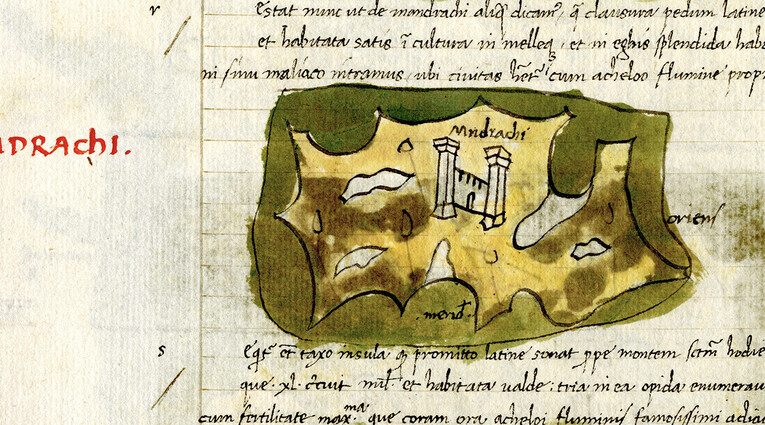 r
Estat nunc ut de mandrachi aliq̄ dicam⁹, q̄ clausura pedum latine
et habitata satis ī cultura in melleq; et in eghis splendida
in sinu maliaco intramus, ubi civitas cum acheloo flumine
NDRAChI.
Mndrachi
oriens
merid̄.
s
et taxo insula q̄ promitto latine sonat ppe montem hodie
que .xl. mil̄. et habitata valde : tria in ea opida
cum fertilitate max.ma que coram ora acheloi fluminis famosissimi